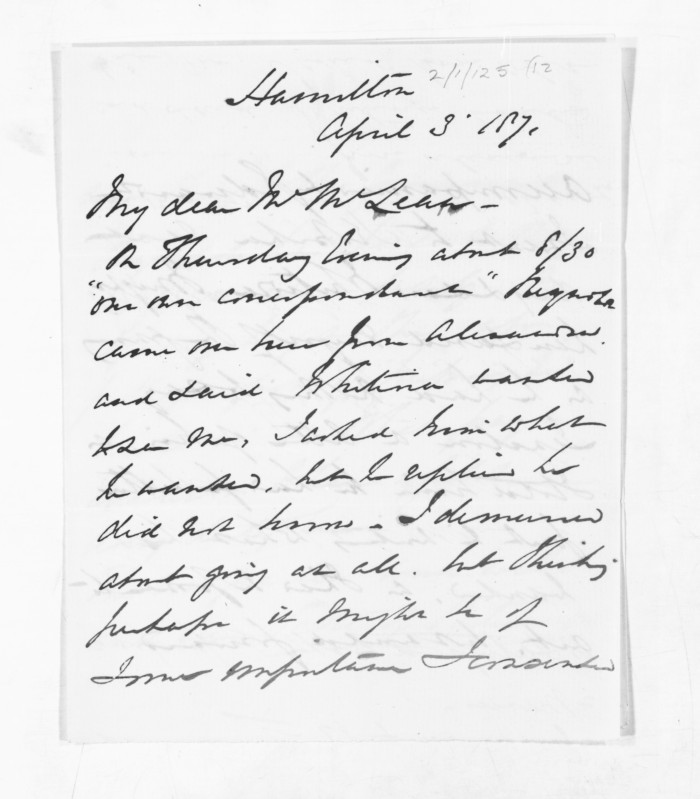 Hamilton 2/1/125 /12
April 3. 187.
My dear Mr McLean -
On Thursday Evening about 8/30
"our own correspondent"
came over here from Alexandra.
and said Whitiora wanted
to see me, I asked him what
he wanted, but he replied he
did not know - I demurred
about going at all. but thinking
perhaps it might be of
some importance I consented